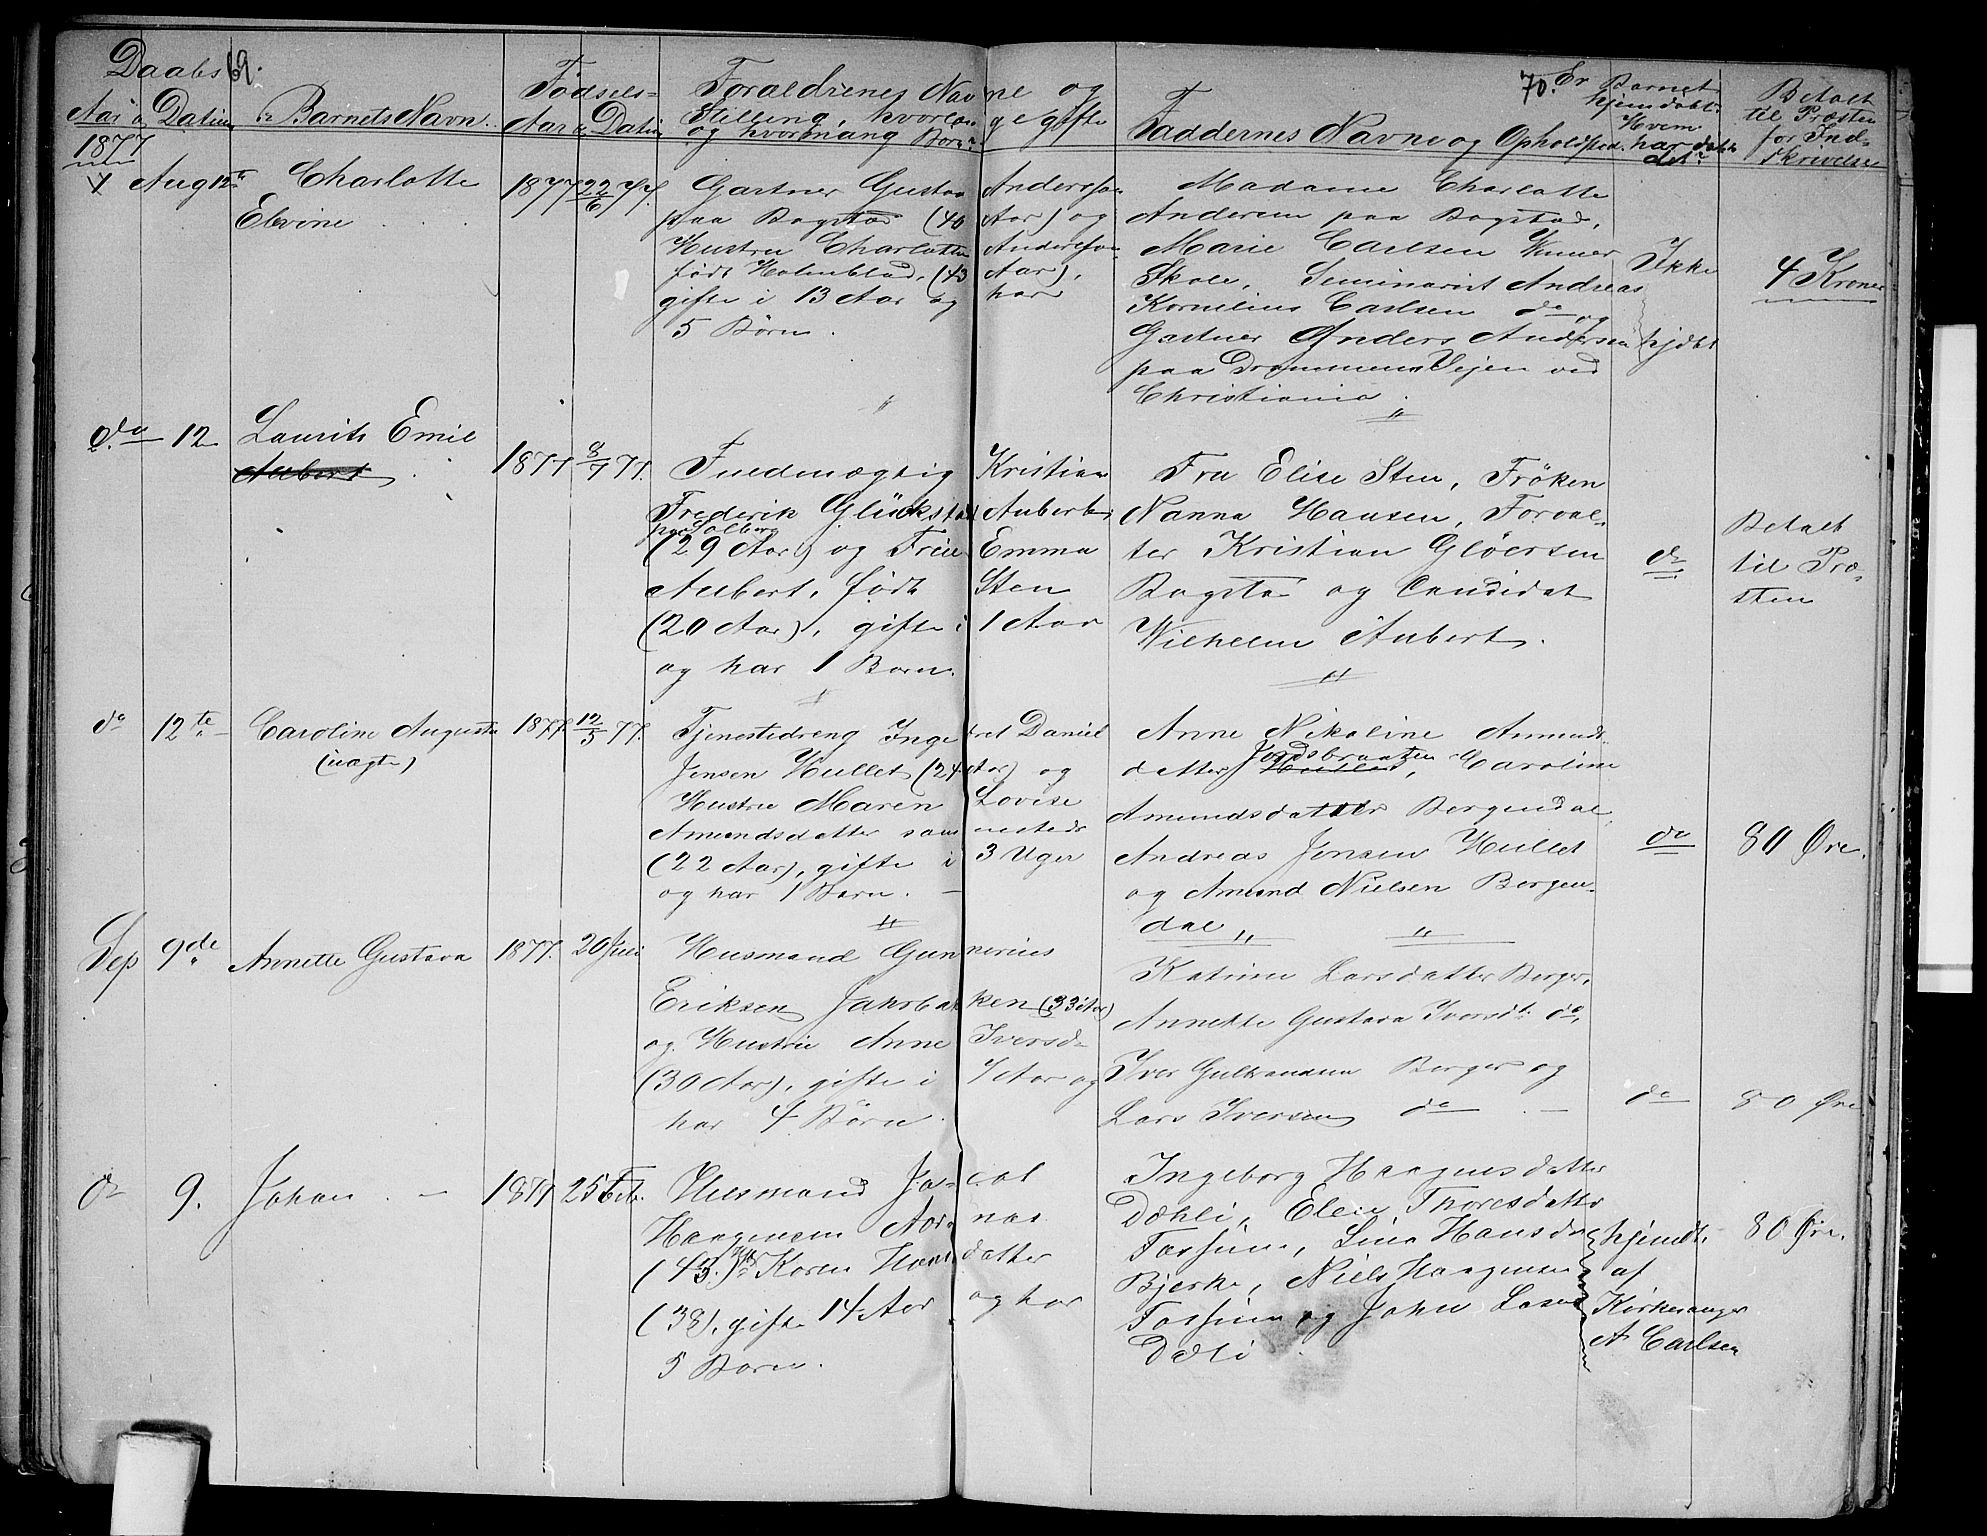 Daabs 69.
Aar og Datum
Barnets Navn.
Fødsels-
Aar og Datum
Forældrenes Navne og
Stilling, hvorlænge gifte
og hvormang Børn
70.
Faddernes Navne og Opholdssted.
Er Barnet
hjemdøbt
Hvem
har døbt
det?
Betalt
til Præsten
for Ind-
skrivelse
1877
Aug 12te
Charlotte
Elvine
1877 22/6 77.
Gartner Gustav Anderssen
paa Bogstad (40 Aar) og
Hustru Charlotte Anderssen
født Holmblad, (43 Aar),
gifte i 13 Aar og har
5 Børn.
Madame Charlotte
Andersen paa Bogstad,
Marie Carlsen
Skole, Seminarist Andreas
Kornelius Carlsen do og
Gartner Anders Andersen
paa Drammensveien ved
Christiania.
Ikke
hjdbt
4 Kroner
do 12
Laurits Emil
Aubert
1877 8/7 77.
Fuldmægtig Kristian
Frederik Glückstad Aubert
paa Solberg
(29 Aar) og Frue Emma
Aubert, født Sten
(20 Aar), gifte i 1 Aar
og har 1 Barn.
Fru Elise Sten, Frøken
Nanna Hansen, Forval-
ter Kristian Gløersen
Bogstad og Candidat
Wilhelm Aubert.
do
Betalt
til Præ-
sten
do 12te
Caroline Augusta
(uægte)
1877. 12/5 77.
Tjenestedreng Ingebret Daniel
Jensen Hullet (24 Aar) og
Hustru Maren Lovise
Amundsdatter sammesteds
(22 Aar), gifte i 3 Uger
og har 1 Barn.
Anne Nikoline Amunds-
datter Jordsbraaten, Caroline
Amundsdatter Bergendal,
Andreas Jensen Hullet
og Amund Nielsen Bergen-
dal
do
80 Øre.
Sep 9de
Annette Gustava
1877. 20 Juli
Husmand Gunnerius
Eriksen Jahrbakken (33 Aar)
og Hustru Anne Iversd-
(30 Aar), gifte i 7 Aar og
har 4 Børn.
Katrine Larsdatter Berger,
Annette Gustava Iversdt. do,
Iver Gulbrandsen Berger og
Lars Iversen do
do
80 Øre
do 9.
Johan
1877 25 Feb.
Husmand Jacob
Haagensen Aarnæs
(43.) Karen Hansdatter
(38), gifte 14 Aar og har
5 Børn.
Ingeborg Haagensdatter
Dæhli, Elen Thoresdatter
Fossum, Lina Hansd
Bjerke, Niels Haagensen
Fossum og John Larsen
Dæli
hjemdt.
af
Kirkesanger
A Carlsen
80 Øre.